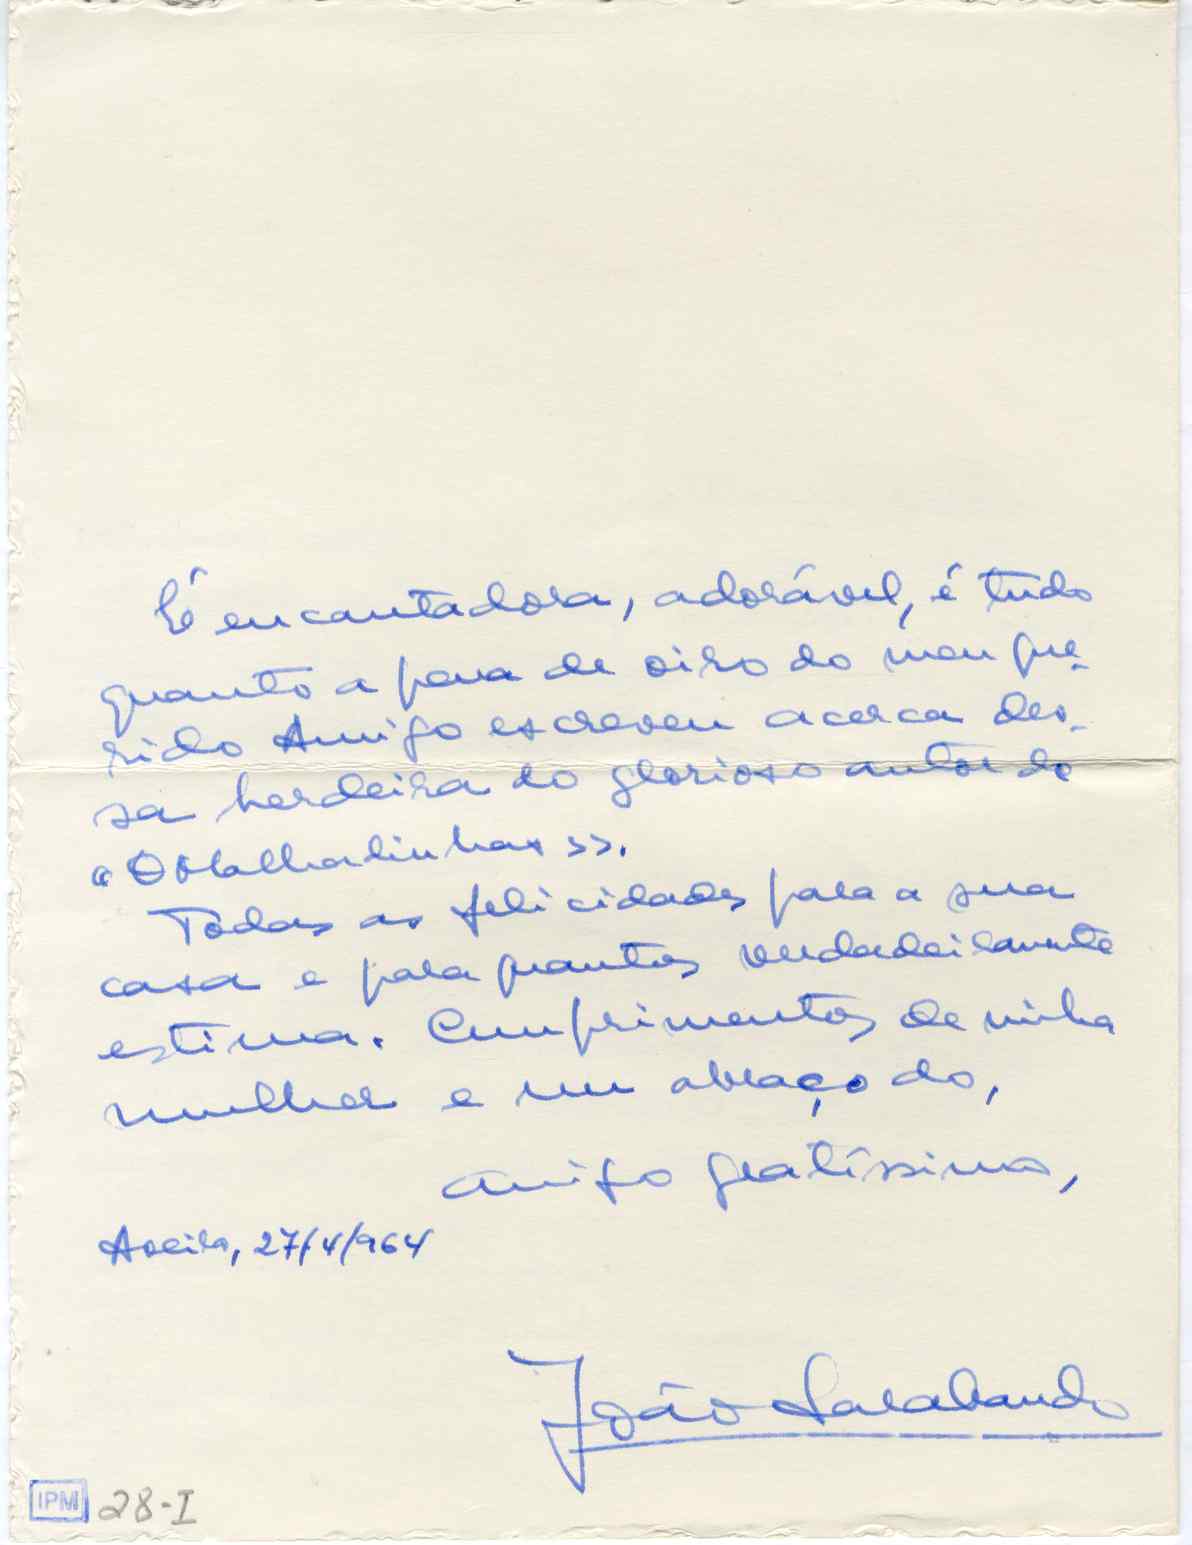 É encantadora, adorável, é tudo
quanto a pena de oiro do meu que-
rido Amigo escreveu acerca des-
sa herdeira do glorioso autor de
«O Malhadinhas».
Todas as felicidades para a sua
casa e para quantos verdadeiramente
estima. Cumprimentos de minha
mulher e um abraço do,
amigo gratíssimo,
Aveiro, 27/4/964
João Sarabando
IPM 28-I